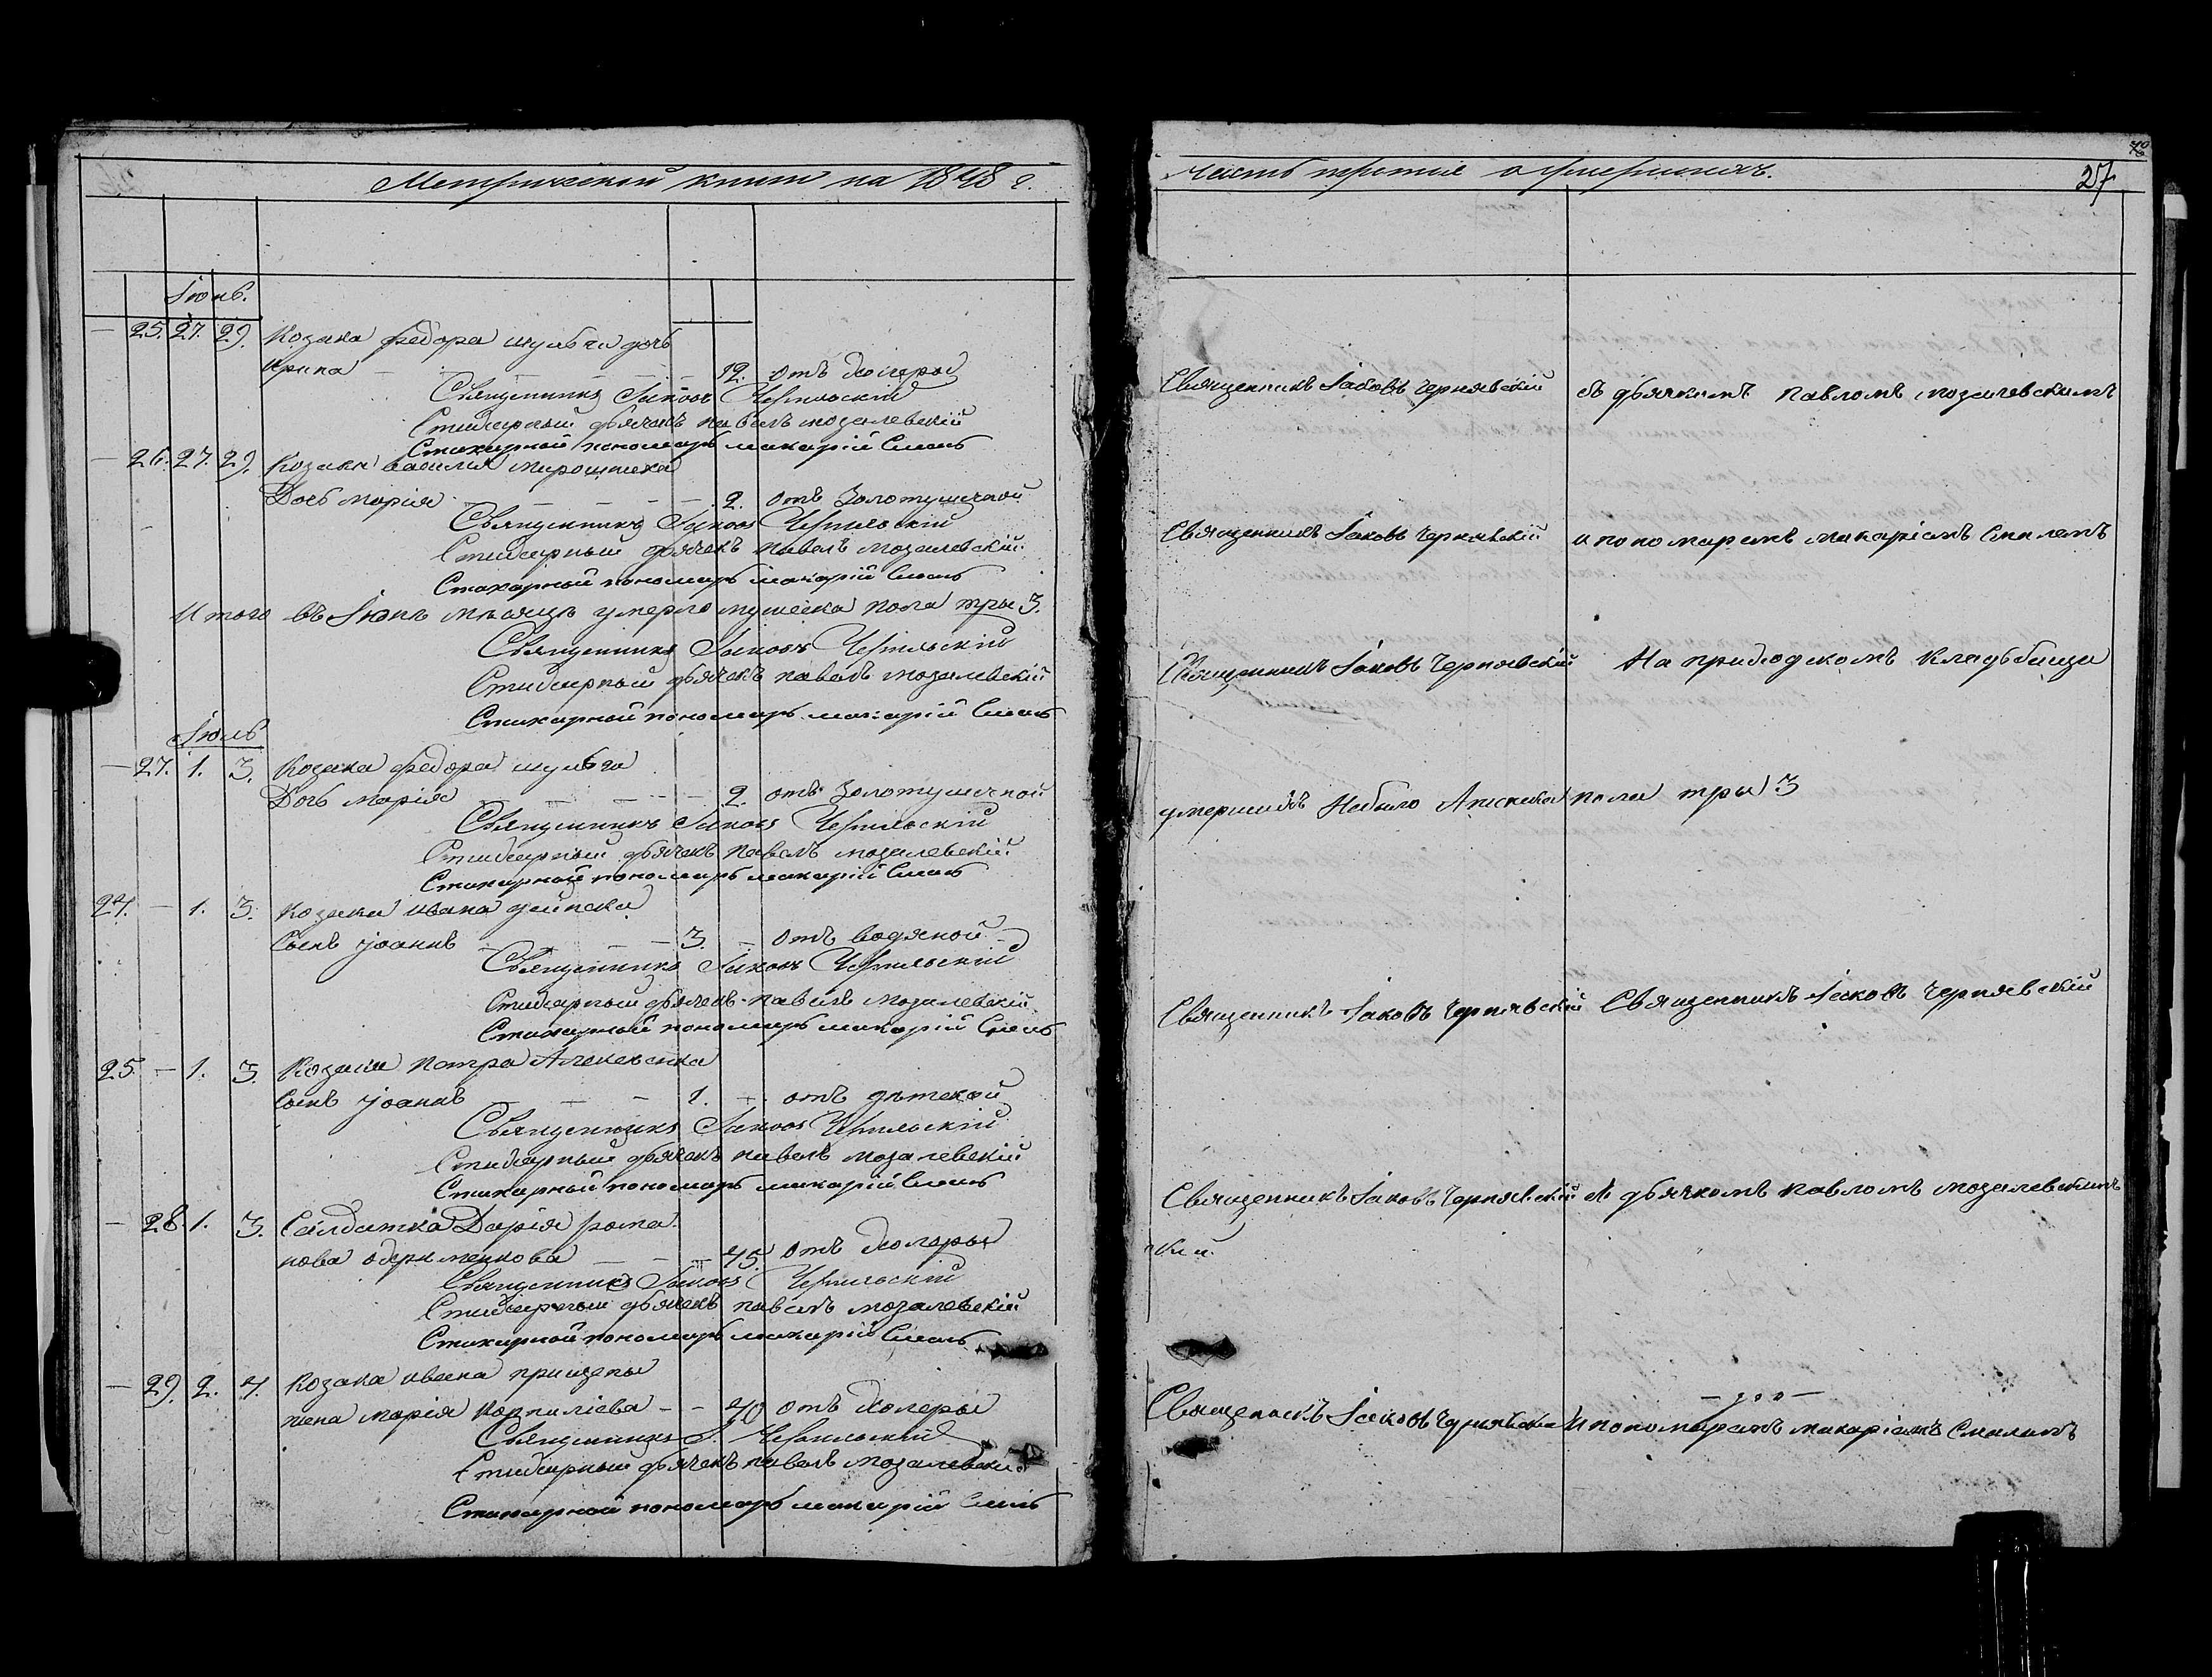 Метрической книги на 1848 г.
Іюнь.
— 25. 27. 29. Козака Федора шульги дочь
Ирина — — — 12. отъ холеры
Священникъ Іаковъ Чернявскій
Стихарный дьячекъ павелъ мозалевскій
Стихарный пономарь макарій Смаль
— 26. 27. 29. Козака василия Мирошника
Дочь марія — — — 2. отъ золотушной
Священникъ Іаковъ Чернявскій
Стихарный дьячекъ павелъ мозалевскій
Стихарный пономарь макарій Смаль
Итого въ Іюнѣ мѣсяцѣ умерло мужеска пола тры 3.
Священникъ Іаковъ Чернявскій
Стихарный дьячекъ павелъ мозалевскій
Стихарный пономарь макарій Смаль
Іюль
— 27. 1. 3. Козака федора шульги
Дочь марія — — — 2. отъ золотушной
Священникъ Іаковъ Чернявскій
Стихарный дьячекъ павелъ мозалевскій
Стихарный пономарь макарій Смаль
24. — 1. 3. Козака ивана
Сынъ іоаннъ — — 3. — отъ водяной
Священникъ Іаковъ Чернявскій
Стихарный дьячекъ павелъ мозалевскій
Стихарный пономарь макарій Смаль
25 — 1. 3. Козака петра
Сынъ іоаннъ — — — 1. — отъ дѣтской
Священникъ Іаковъ Чернявскій
Стихарный дьячекъ павелъ мозалевскій
Стихарный пономарь макарій Смаль
— 28. 1. 3. Салдатка Дарія рома
нова — — 75. отъ холеры
Священникъ Іаковъ Чернявскій
Стихарный дьячекъ павелъ мозалевскій
Стихарной пономарь макарій Смаль
— 29. 2. 4. Козака ивана прищепы
жена марія Корнилієва — — 40 отъ холеры
Священникъ І. Чернявскій
Стихарный дьячекъ павелъ мозалевски
Стихарной пономарь макарій Смаль
часть третія о умершихъ.
27
Священникъ Іаковъ Чернявскій съ дьячкомъ павломъ мозалевскимъ
Священникъ Іаковъ Чернявскій и пономаремъ макаріемъ Смалемъ
Священникъ Іаковъ Чернявскій На приходскомъ кладбищи
умершихъ Небыло Аженска пола тры 3
Священникъ Іаковъ Чернявскій Священникъ Іаковъ Чернявскій
Священникъ Іаковъ Чернявскій съ дьячкомъ павломъ мозалевскимъ
Священникъ Іаковъ Чернявскій и пономаремъ макаріемъ Смалемъ